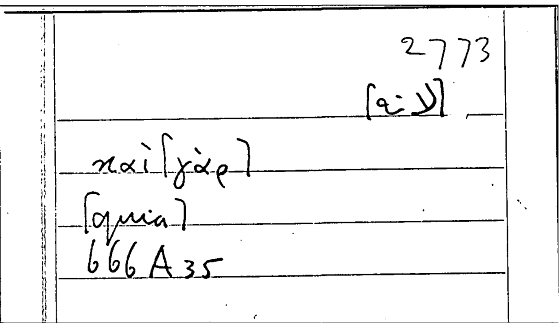 2773
καὶ [γὰρ]
[quia]
666 A 35